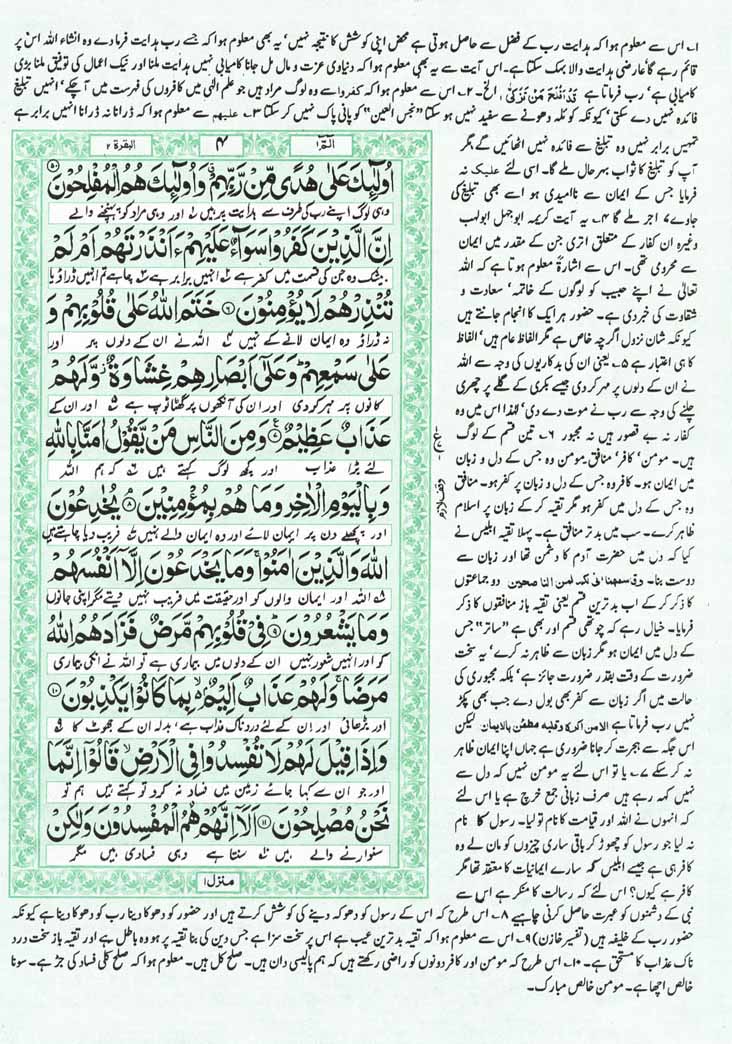 ۱۔ اس سے معلوم ہوا کہ ہدایت رب کے فضل سے حاصل ہوتی ہے محض اپنی کوشش کا نتیجہ نہیں، یہ بھی معلوم ہوا کہ جسے رب ہدایت فرما دے وہ انشاء اللہ اس پر
قائم رہے گا عارضی ہدایت والا بہک سکتا ہے۔ اس آیت سے یہ بھی معلوم ہوا کہ دنیاوی عزت و مال مل جانا کامیابی نہیں ہدایت ملنا اور نیک اعمال کی توفیق ملنا بڑی
کامیابی ہے، رب فرماتا ہے قَدْ اَفْلَحَ مَنْ تَزَکّٰی الخ۔ ۲۔ اس سے معلوم ہوا کہ کفروا سے وہ لوگ مراد ہیں جو علم الٰہی میں کافروں کی فہرست میں آچکے، انہیں تبلیغ
فائدہ نہیں دے سکتی، کیونکہ کوئلہ دھونے سے سفید نہیں ہو سکتا "نجس العین" کو پانی پاک نہیں کر سکتا ۳۔ علیہم سے معلوم ہوا کہ ڈرانا نہ ڈرانا انہیں برابر ہے
البقرۃ ۲
۴
الٓمّٓ ۱
اُولٰٓئِكَ عَلٰى هُدًى مِّنْ رَّبِّهِمْ ۗ وَاُولٰٓئِكَ هُمُ الْمُفْلِحُوْنَ ۵
وہی لوگ اپنے رب کی طرف سے ہدایت پر ہیں اور وہی مراد کو پہنچنے والے
اِنَّ الَّذِيْنَ كَفَرُوْا سَوَآءٌ عَلَيْهِمْ ءَاَنْذَرْتَهُمْ اَمْ لَمْ
بیشک وہ جن کی قسمت میں کفر ہے انہیں برابر ہے چاہے تم انہیں ڈراؤ یا
تُنْذِرْهُمْ لَا يُؤْمِنُوْنَ ۶ خَتَمَ اللّٰهُ عَلٰى قُلُوْبِهِمْ وَ
نہ ڈراؤ وہ ایمان لانے کے نہیں اللہ نے ان کے دلوں پر اور
عَلٰى سَمْعِهِمْ ۗ وَعَلٰٓى اَبْصَارِهِمْ غِشَاوَةٌ ۡ وَّلَهُمْ
کانوں پر مہر کر دی اور ان کی آنکھوں پر گھٹا ٹوپ ہے اور ان کے
عَذَابٌ عَظِيْمٌ ۷ وَمِنَ النَّاسِ مَنْ يَّقُوْلُ اٰمَنَّا بِاللّٰهِ
لئے بڑا عذاب اور کچھ لوگ کہتے ہیں کہ ہم اللہ
وَبِالْيَوْمِ الْاٰخِرِ وَمَا هُمْ بِمُؤْمِنِيْنَ ۸ يُخٰدِعُوْنَ
اور پچھلے دن پر ایمان لائے اور وہ ایمان والے نہیں فریب دیا چاہتے ہیں
اللّٰهَ وَالَّذِيْنَ اٰمَنُوْا ۚ وَمَا يَخْدَعُوْنَ اِلَّآ اَنْفُسَهُمْ
اللہ اور ایمان والوں کو اور حقیقت میں فریب نہیں دیتے مگر اپنی جانوں
وَمَا يَشْعُرُوْنَ ۹ فِيْ قُلُوْبِهِمْ مَّرَضٌ ۙ فَزَادَهُمُ اللّٰهُ
کو اور انہیں شعور نہیں ان کے دلوں میں بیماری ہے تو اللہ نے انکی بیماری
مَرَضًا ۚ وَلَهُمْ عَذَابٌ اَلِيْمٌ ۢ ۙ بِمَا كَانُوْا يَكْذِبُوْنَ ۱۰
اور بڑھائی اور ان کے لئے دردناک عذاب ہے، بدلہ ان کے جھوٹ کا
وَاِذَا قِيْلَ لَهُمْ لَا تُفْسِدُوْا فِي الْاَرْضِ ۙ قَالُوْٓا اِنَّمَا
اور جو ان سے کہا جائے زمین میں فساد نہ کرو تو کہتے ہیں ہم تو
نَحْنُ مُصْلِحُوْنَ ۱۱ اَلَآ اِنَّهُمْ هُمُ الْمُفْسِدُوْنَ وَلٰكِنْ
سنوارنے والے ہیں سنتا ہے وہی فسادی ہیں مگر
منزل ۱
وقف لازم
تمہیں برابر نہیں وہ تبلیغ سے فائدہ نہیں اٹھائیں گے مگر
آپ کو تبلیغ کا ثواب بہرحال ملے گا۔ اسی لئے علیک نہ
فرمایا جس کے ایمان سے ناامیدی ہو اسے بھی تبلیغ کی
جاوے اجر ملے گا ۴۔ یہ آیت کریمہ ابوجہل ابولہب
وغیرہ ان کفار کے متعلق اتری جن کے مقدر میں ایمان
سے محرومی تھی۔ اس سے اشارۃً معلوم ہوتا ہے کہ اللہ
تعالٰی نے اپنے حبیب کو لوگوں کے خاتمہ، سعادت و
شقاوت کی خبر دی ہے۔ حضور ہر ایک کا انجام جانتے ہیں
کیونکہ شان نزول اگرچہ خاص ہے مگر الفاظ عام ہیں، الفاظ
کا ہی اعتبار ہے ۵۔ یعنی ان کی بدکاریوں کی وجہ سے اللہ
نے ان کے دلوں پر مہر کر دی جیسے بکری کے گلے پر چھری
چلنے کی وجہ سے رب نے موت دے دی، لہٰذا اس میں وہ
کفار نہ بے قصور ہیں نہ مجبور ۶۔ تین قسم کے لوگ
ہیں۔ مومن، کافر، منافق۔ مومن وہ جس کے دل و زبان
میں ایمان ہو۔ کافر وہ جس کے دل و زبان پر کفر ہو۔ منافق
وہ جس کے دل میں کفر ہو مگر تقیہ کر کے زبان پر اسلام
ظاہر کرے۔ سب میں بدتر منافق ہے۔ پہلا تقیہ ابلیس نے
کیا کہ دل میں حضرت آدم کا دشمن تھا اور زبان سے
دوست بنا۔ وقاسمہما انی لکما لمن الناصحین دو جماعتوں
کا ذکر کر کے اب بدترین قسم یعنی تقیہ باز منافقوں کا ذکر
فرمایا۔ خیال رہے کہ چوتھی قسم اور بھی ہے "ساتر" جس
کے دل میں ایمان ہو مگر زبان سے ظاہر نہ کرے، یہ سخت
ضرورت کے وقت بقدر ضرورت جائز ہے، بلکہ مجبوری کی
حالت میں اگر زبان سے کفر بھی بول دے جب بھی پکڑ
نہیں رب فرماتا ہے الا من اکرہ و قلبہ مطمئن بالایمان لیکن
اس جگہ سے ہجرت کر جانا ضروری ہے جہاں اپنا ایمان ظاہر
نہ کر سکے ۷۔ یا تو اس لئے یہ مومن نہیں کہ دل سے
نہیں کہہ رہے ہیں صرف زبانی جمع خرچ ہے یا اس لئے
کہ انہوں نے اللہ اور قیامت کا نام تو لیا۔ رسول کا نام
نہ لیا جو رسول کو چھوڑ کر باقی ساری چیزوں کو مان لے وہ
کافر ہی ہے جیسے ابلیس کہ سارے ایمانیات کا معتقد تھا مگر
کافر ہے کیوں؟ اس لئے کہ رسالت کا منکر ہے اس سے
نبی کے دشمنوں کو عبرت حاصل کرنی چاہیے ۸۔ اس طرح کہ اس کے رسول کو دھوکہ دینے کی کوشش کرتے ہیں اور حضور کو دھوکا دینا رب کو دھوکا دینا ہے کیونکہ
حضور رب کے خلیفہ ہیں (تفسیر خازن) ۹۔ اس سے معلوم ہوا کہ تقیہ بدترین عیب ہے اس پر سخت سزا ہے جس دین کی بنا تقیہ پر ہو وہ باطل ہے اور تقیہ باز سخت درد
ناک عذاب کا مستحق ہے۔ ۱۰۔ اس طرح کہ مومن اور کافر دونوں کو راضی رکھتے ہیں کہ ہم پالیسی دان ہیں۔ صلح کل ہیں۔ معلوم ہوا کہ صلح کلی فساد کی جڑ ہے۔ سونا
خالص اچھا ہے۔ مومن خالص مبارک۔